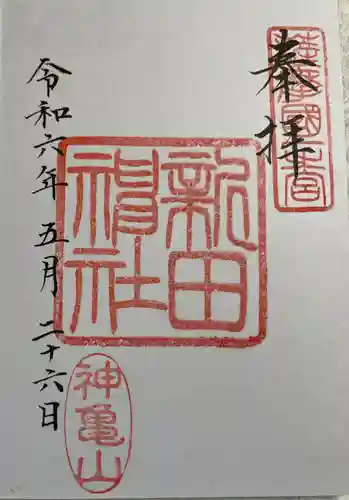 奉拝
薩摩國一宮
新田
神社
令和六年 五月 二十六日
神亀山